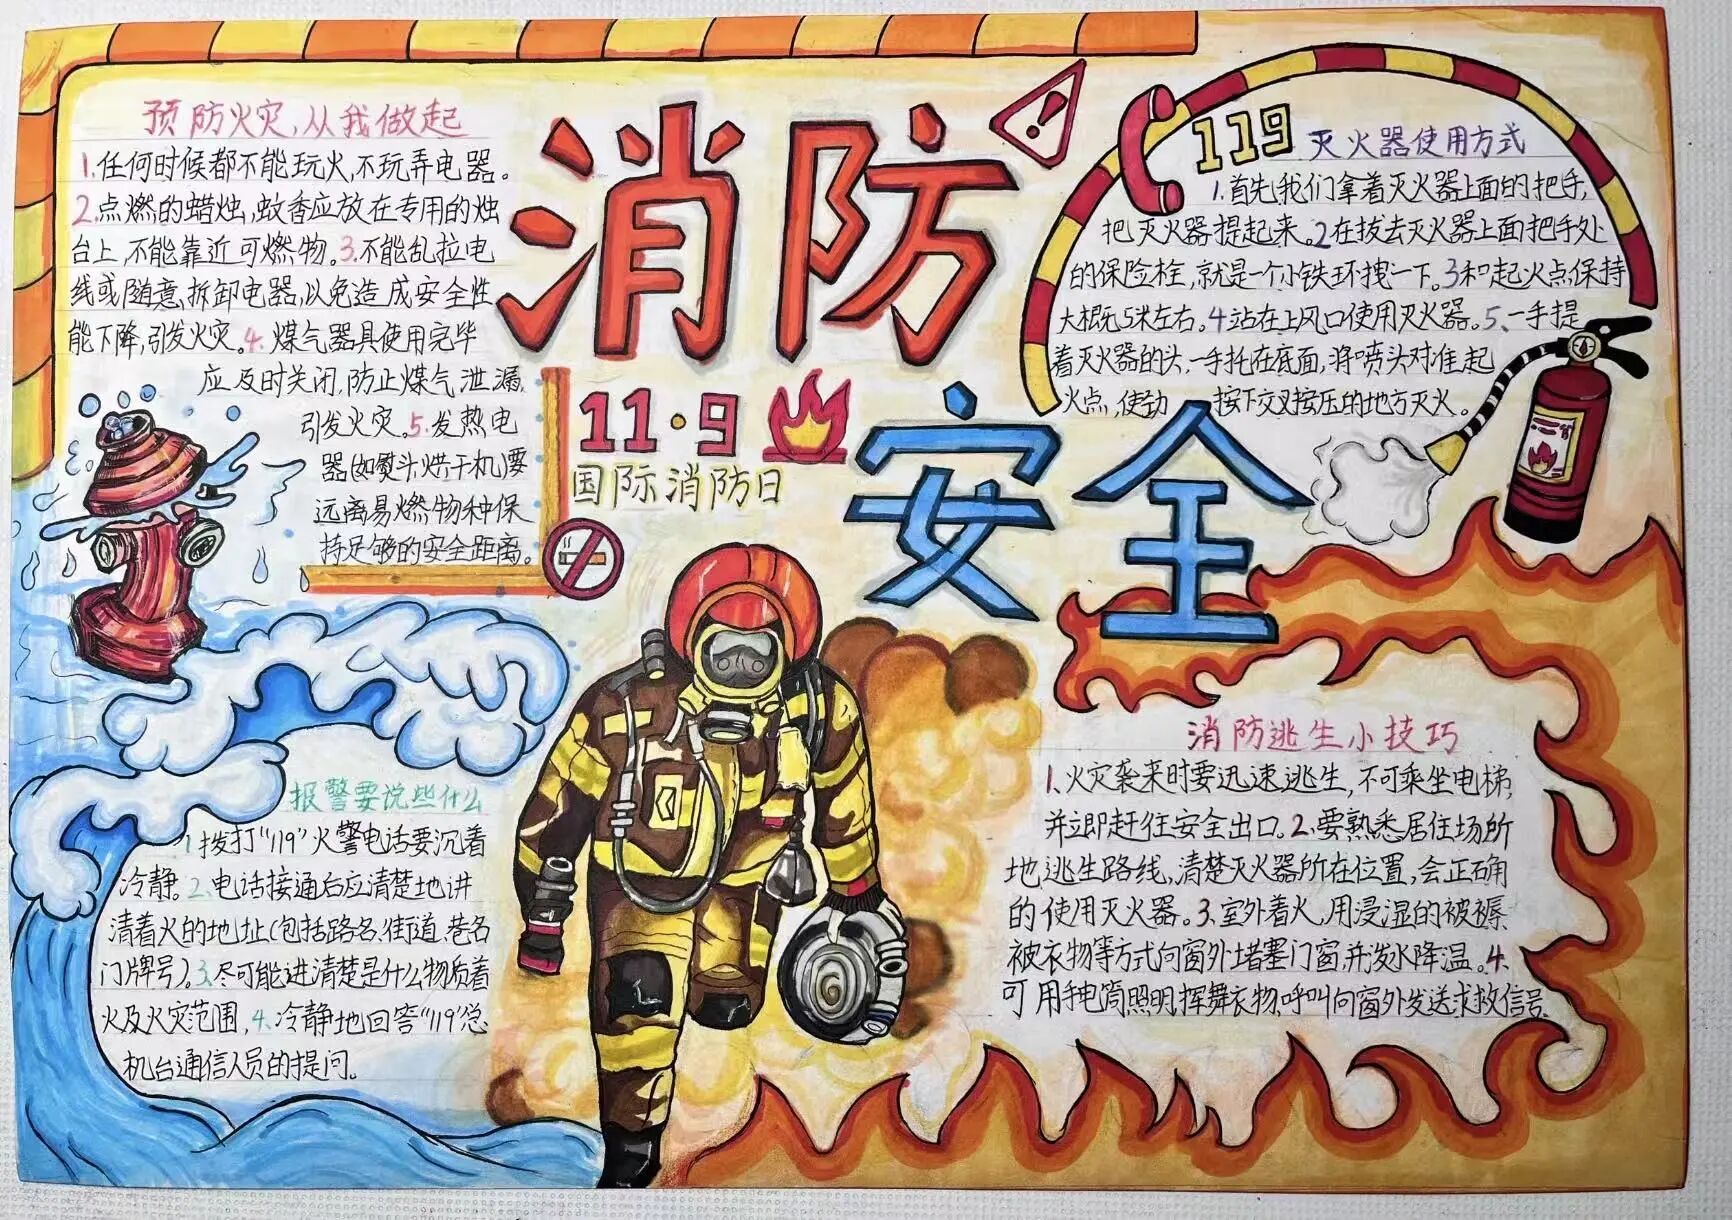 预防火灾,从我做起
1.任何时候都不能玩火,不玩弄电器。
2.点燃的蜡烛,蚊香应放在专用的烛
台上,不能靠近可燃物。3.不能乱拉电
线或随意拆卸电器,以免造成安全性
能下降,引发火灾。4.煤气器具使用完毕
应及时关闭,防止煤气泄漏,
引发火灾。5.发热电
器(如熨斗烘干机)要
远离易燃物种保
持足够的安全距离。
消防
安全
11·9
国际消防日
119
灭火器使用方式
1.首先我们拿着灭火器上面的把手,
把灭火器提起来。2.在拔去灭火器上面把手处
的保险栓,就是一个小铁环拽一下。3和起火点保持
大概5米左右。4站在上风口使用灭火器。5、一手提
着灭火器的头,一手托在底面,将喷头对准起
火点,使劲 按下交叉按压的地方灭火。
报警要说些什么
1拨打“119”火警电话要沉着
冷静。2.电话接通后应清楚地讲
清着火的地址(包括路名、街道、巷名
门牌号)。3.尽可能进清楚是什么物质着
火及火灾范围,4.冷静地回答“119”总
机台通信人员的提问。
消防逃生小技巧
1、火灾袭来时要迅速逃生,不可乘坐电梯,
并立即赶往安全出口。2.要熟悉居住场所
地逃生路线,清楚灭火器所在位置,会正确
的使用灭火器。3.室外着火,用浸湿的被褥
被衣物等方式向窗外堵塞门窗,并泼水降温。4.
可用手电筒照明,挥舞衣物,呼叫向窗外发送求救信号